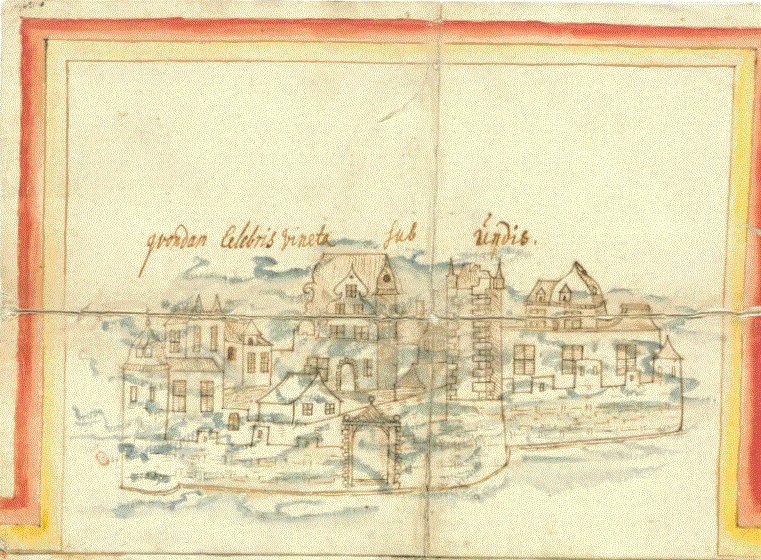 qvondan Celebris Vineta sub undis.